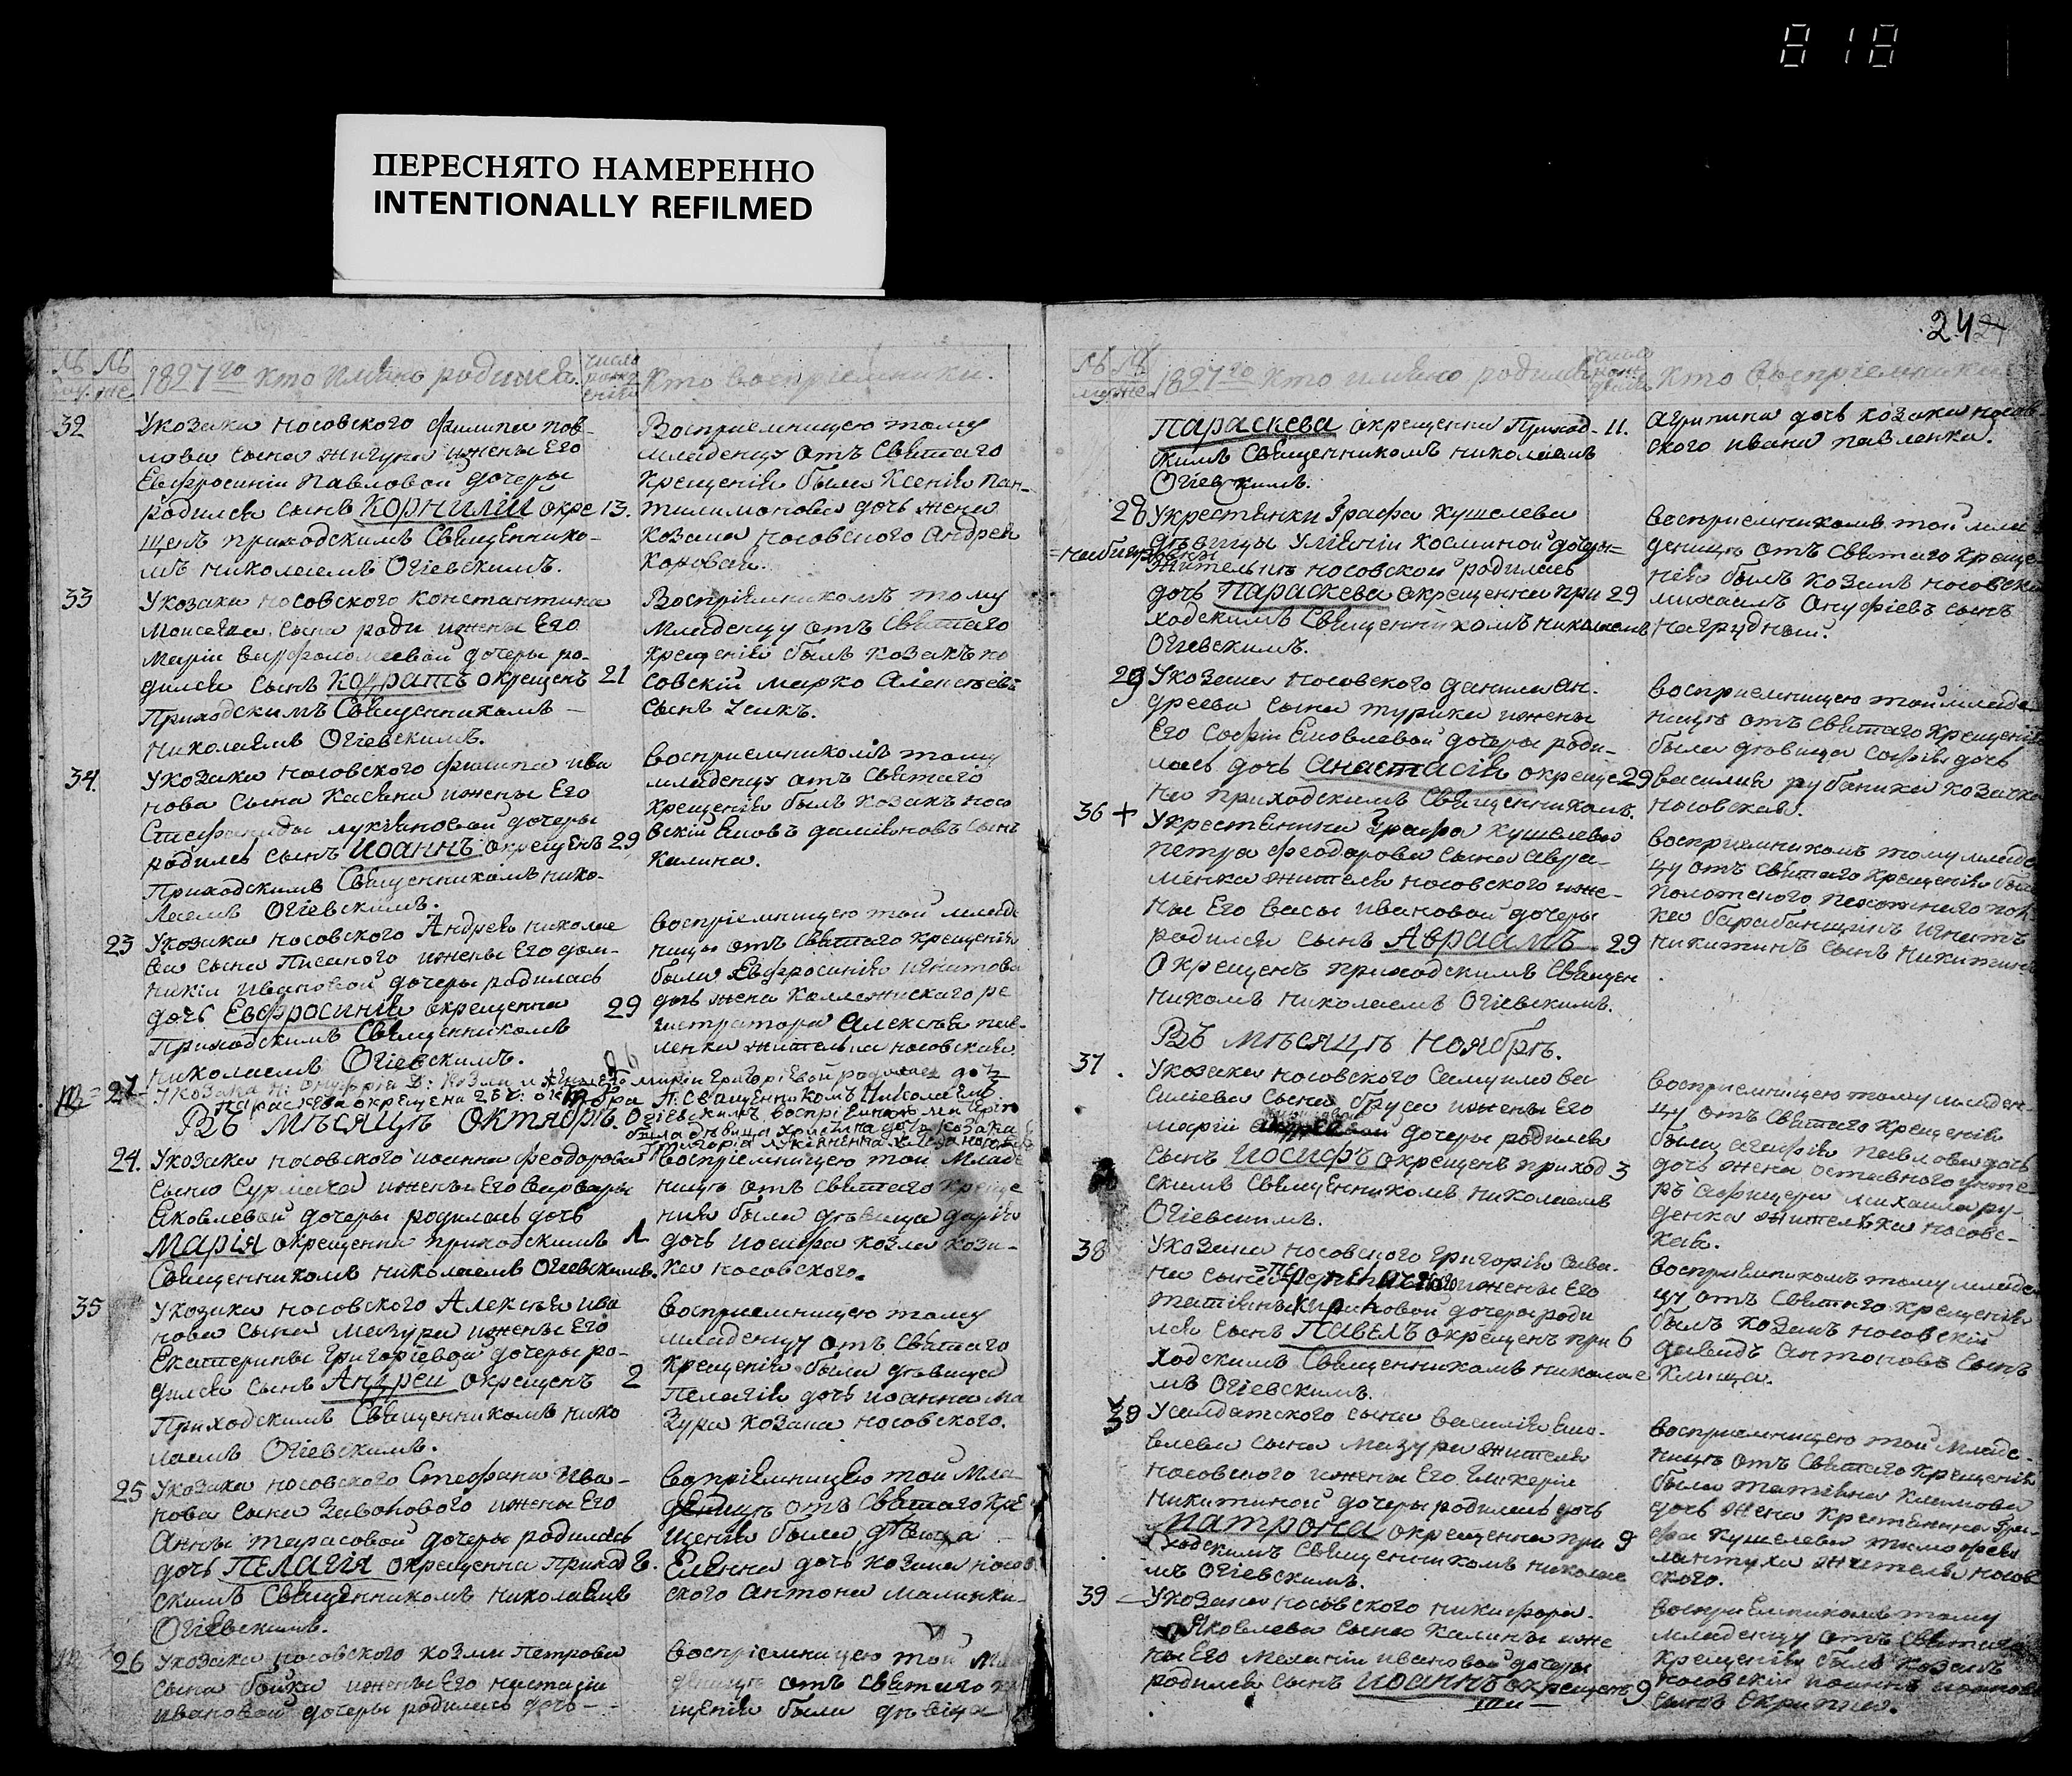 818
ПЕРЕСНЯТО НАМЕРЕННО
INTENTIONALLY REFILMED
1827го кто имянно родился.
кто восприемники.
32
Укозака носовского филипа пав-
лова сына жигуна ижены Его
Евфросинiи Павловой дочеры
родился сынъ Корнилiй окре 13.
щенъ приходскимъ Священнико-
мъ николаемъ Огiевскимъ.
Восприемницею тому
младенцу отъ Святаго
Крещенiя была Ксенiя пан-
тилимонова дочь жена
козака носовского андрея
Коровая.
33
Укозака носовского константина
Моисеева сына ижены Его
Марiи варфоломеевой дочеры ро-
дился сынъ Кодратъ окрещенъ 21
Приходскимъ Священникомъ
николаемъ Огiевскимъ.
Восприемникомъ тому
Младенцу отъ Святаго
Крещенiя былъ козакъ но
совскiй марко Алексѣевъ
сынъ
34.
Укозака носовского филипа ива
нова сына Касяна ижены Его
Стефаниды лукяновой дочеры
родилсь сынъ Иоаннъ окрещенъ 29
Приходскимъ Священникомъ нико-
лаемъ Огiевскимъ.
восприемникомъ тому
младенцу отъ Святаго
Крещенiя былъ козакъ носо
вскiй Еяовъ дамiяновъ сынъ
Калина.
23
Укозака носовского Андрея николае
ва сына Писаного ижены Его дом-
никiи ивановой дочеры родилась
дочь Евфросинiя окрещенна 29
Приходскимъ Священникомъ
николаемъ Огiевскимъ.
восприемницею той младе
ницы отъ Святаго крещенiя
была Евфросинiя игнатова
дочь жена Коллежискаго ре
гистратора Алексѣя пав-
ленка жителька носовская.
27
Укозака н: онуфрiя Д: Козли и жены Его марiи григорiевой родилась дочь
параскева окрещена 26 ч: октобра П: священникомъ Николаемъ
Огiевскимъ
Въ мѣсяцѣ Октябрѣ.
24.
Укозака носовского иоанна феодорова
сына Сурмача ижены Его варвары
Яковлевой дочеры родилась дочь
Марiя окрещенна приходскимъ 1
Священникомъ николаемъ Огiевскимъ.
воспрiемницею той Младе
ницѣ отъ Святаго креще
нiя была дѣвица дарiя
дочь иосифа козла коза-
ка носовского.
35
Укозака носовского Алексѣя ива
нова сына мазура ижены Его
Екатерины Григорiевой дочеры ро-
дился сынъ Андрей окрещенъ 2
Приходскимъ Священникомъ нико
лаемъ Огiевскимъ.
восприемницею тому
младенцу отъ Святаго
Крещенiя была дѣвица
Пелагiя дочь иоанна ма
зура козака носовского.
25
Укозака носовского Стефана ива-
нова сына ижены Его
Анны тарасовой дочеры родилась
дочь Пелагiя окрещенна Приход 6.
скимъ Священникомъ николаемъ
Огiевскимъ.
вопрiемницею той Мла
деницѣ отъ Святаго Кре
щенiя была дѣвица
Еленна дочь козака носов
ского антона малинки.
26
Укозака носовского козми Петрова
сына бойка ижены Его настасiи
ивановой дочеры родилась дочь
воспрiемницею той Мла
деницѣ отъ святаго кре
щенiя была дѣвица
24
1827го кто имяно родился
кто Воспрiемники
Параскева окрещенна Приход- 11.
скимъ Священникомъ николаемъ
Огiевскимъ.
агрипина дочь козака носов
ского ивана павленка.
28
Укрестянки Графа кушелева
дѣвицы Улiянiи косминой дочеры
жительки носовской родилась
дочь Параскева окрещенна при 29
ходскимъ Священникомъ николаемъ
Огiевскимъ.
восприемникомъ той мла
деницѣ отъ Святаго Креще
нiя былъ козакъ носовски
михаилъ Онуфрiевъ сынъ
нагрудный.
29
Укозака носовского данила ан-
дреева сына турика ижены
Его Софiи Еяовлевой дочеры роди-
лась дочь Анастасiя окреще 29
на приходскимъ Священникомъ.
восприемницею той младе
ницѣ отъ Святаго Крещенiя
была дѣвица софiя дочь
василия рубаника козачка
носовская.
36 +
Укрестянина Графа кушелева
петра феодорова сына Авра-
менка жителя носовского иже-
ны Его васы ивановой дочеры
родился сынъ Авраамъ 29
Окрещенъ приходскимъ Священ
никомъ николаемъ Огiевскимъ.
восприемникомъ тому младе
цу отъ Святаго Крещенiя былъ
полотского пехотнаго пол
ка барабанщикъ игнатъ
никитинъ сынъ никитинъ
Въ мѣсяцѣ Ноябрѣ.
37
Укозака носовского Самуила ва
силiева сына бруса ижены Его
марiи дочеры родился
сынъ Иосифъ окрещенъ приход 3
скимъ Священникомъ николаемъ
Огiевскимъ.
восприемницею тому младен-
цу отъ Святаго Крещенiя
была агафiя павлова дочь
дочь жена оставного унте
ръ афицера михаила ру-
денка жителька носовс-
кая.
38
Укозака носовского Григорiя сава-
на сына ижены Его
татiяны дочеры роди
лся сынъ Павелъ окрещенъ при 6
ходскимъ Священникомъ николае
мъ Огiевскимъ.
восприемникомъ тому младен
цу отъ Святаго Крещенiя
былъ козакъ носовскiй
давидъ антоновъ сынъ
Клища.
30
Усалдатского сына василiя Еяо-
влева сына мазура жителя
носовского ижены Его Гликерiи
никитиной дочеры родилась дочь
Матрона окрещенна при 9
ходскимъ Священникомъ николае
мъ Огiевскимъ.
восприемницею той Младе-
ницѣ отъ Святаго Крещенiя
была татiяна климова
дочь жена Крестянина Гра-
фа кушелева тимофея
лантуха жителя носов
ского.
39
Укозака носовского никифора
Яковлева сына калины иже
ны Его меланiи ивановой дочеры
родился сынъ Иоаннъ окрещенъ 9
восприемникомъ тому
младенцу отъ Святаго
крещенiя былъ козакъ
носовскiй иоаннъ
сынъ Скрипка.